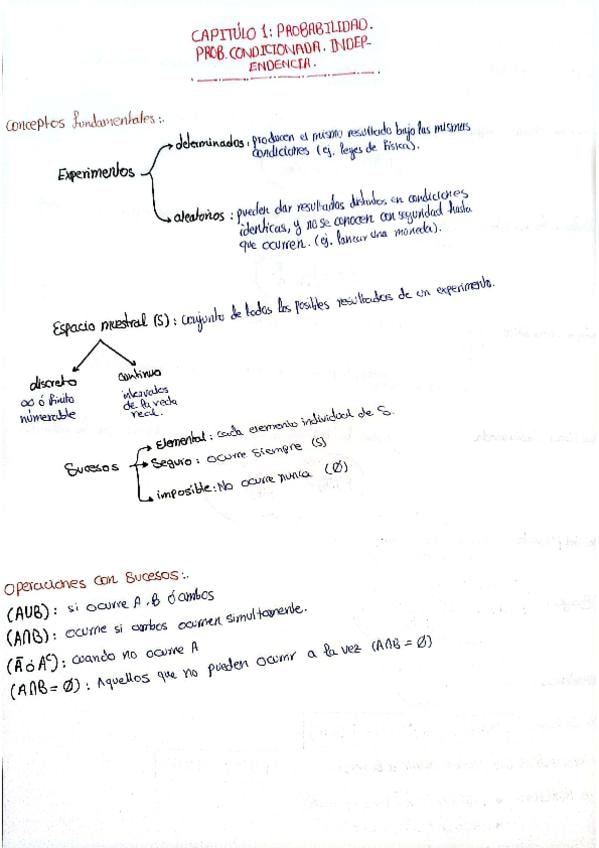 CAPITÚLO 1: PROBABILIDAD.
PROB. CONDICIONADA. INDEP-
ENDENCIA.
Conceptos fundamentales:.
Experimentos
determinados: producen el mismo resultado bajo las mismas
condiciones (ej. leyes de Física).
aleatorios: pueden dar resultados distintos en condiciones
identicas, y no se conocen con seguridad hasta
que ocurren. (ej. lanzar una moneda).
Espacio muestral (S): conjunto de todos los posibles resultados de un experimento.
discreto
∞ ó finito
númerable
continuo
intervalos
de la recta
real.
Sucesos
Elemental: cada elemento individual de S.
Seguro: ocurre siempre (S)
imposible: No ocurre nunca (Ø)
Operaciones con Sucesos:.
(AUB): si ocurre A, B ó ambos
(A∩B): ocurre si ambos ocurren simultamente.
(Ā ó Aᶜ): cuando no ocurre A
(A∩B = Ø): Aquellos que no pueden ocurrir a la vez (A∩B = Ø)